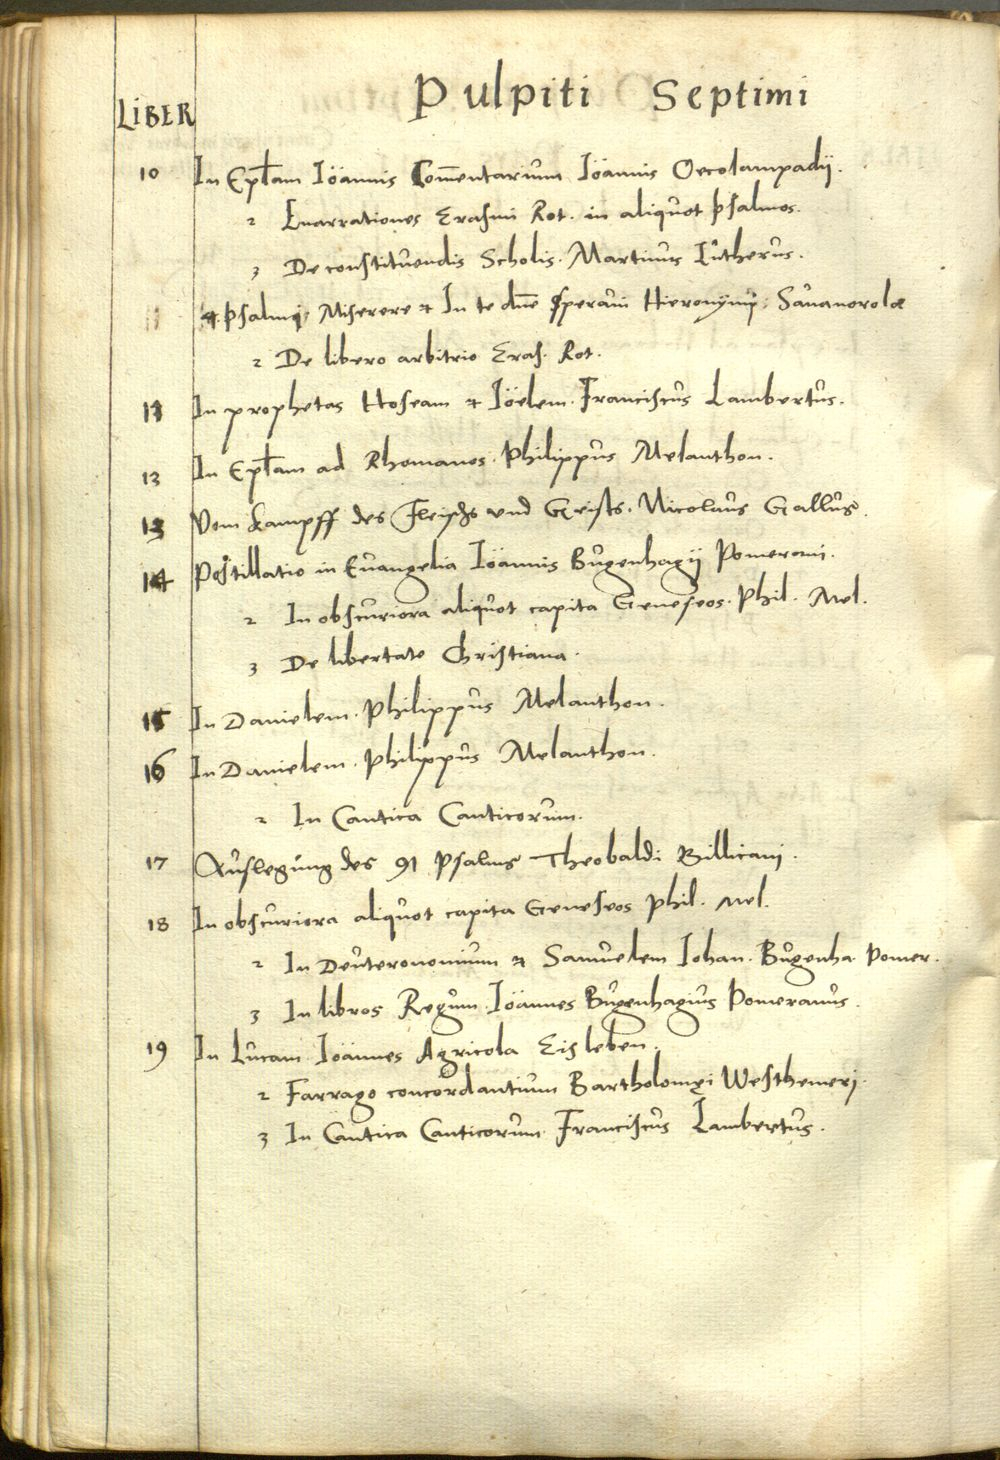 Pulpiti Septimi
LIBER
10 In Epl̄am Iöannis Com̄entarium Iöannis Oecolampadij.
2 Enarrationes Erasmi Rot. in aliquot psalmos.
3 De constituendis Scholis. Martinus Lutherus.
11 4. Psalmi, Miserere & In te dn̄e speraui Hieronymi Sauanorolæ
2 De libero arbitrio Eras. Rot.
In prophetas Hoseam & Iöelem. Franciscus Lambertus.
12 In Epl̄am ad Rhomanos. Philippus Melanthon.
13 Vom kampff des Fleischs vnd Geists. Nicolaus Gallus.
14 Postillatio in Euangelia Iöannis Bugenhagij Pomerani.
2 In obscuriora aliquot capita Geneseos. Phil. Mel.
3 De libertate Christiana.
15 In Danielem. Philippus Melanthon.
16 In Danielem. Philippus Melanthon.
2 In Cantica Canticorum.
17 Auslegung des 91 Psalms Theobaldi Billicani.
18 In obscuriora aliquot capita Geneseos Phil. Mel.
2 In Deuteronomium & Samuelem Iohan. Bugenha. Pomer.
3 In libros Regum. Iöannes Bugenhagius Pomeranus.
19 In Lucam Iöannes Agricola Eisleben.
2 Farrago concordantium Bartholomęi Westhemeri.
3 In Cantica Canticorum Franciscus Lambertus.